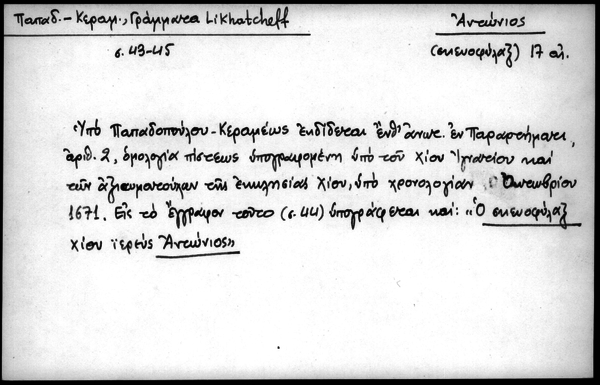 Παπαδ.-Κεραμ., Γράμματα Likhatcheff
Ἀντώνιος
σ. 43-45
(σκευοφύλαξ) 17 αἰ.
Ὑπό Παπαδοπούλου-Κεραμέως ἐκδίδεται ἔνθ' ἀνωτ. ἐν Παραρτήματι,
ἀριθ. 2, ὁμολογία πίστεως ὑπογραφομένη ὑπό τοῦ Χίου Ἰγνατίου καί
τῶν ἀξιωματούχων τῆς ἐκκλησίας Χίου, ὑπό χρονολογίαν Ὀκτωβρίου
1671. Εἰς τό ἔγγραφον τοῦτο (σ. 44) ὑπογράφεται καί: «Ὁ σκευοφύλαξ
Χίου ἱερεύς Ἀντώνιος»